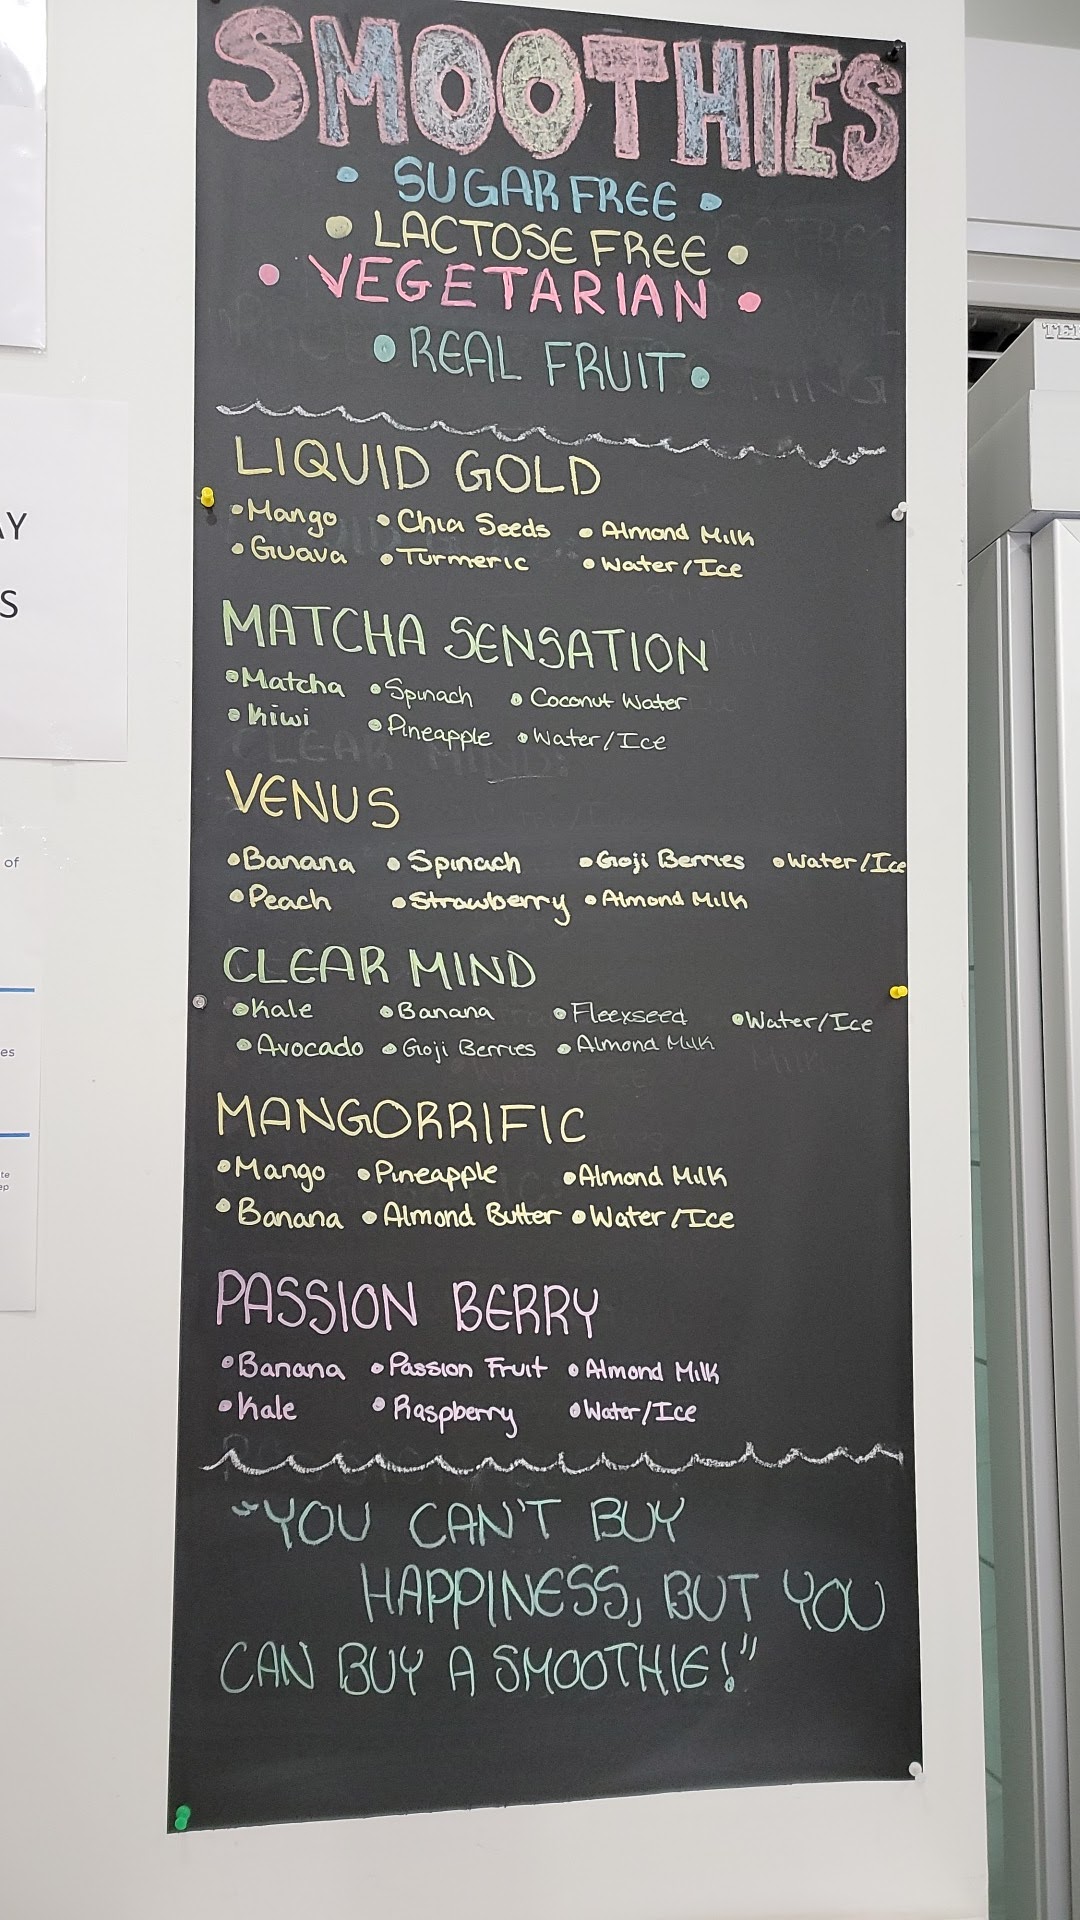 SMOOTHIES
• SUGAR FREE •
• LACTOSE FREE •
• VEGETARIAN •
• REAL FRUIT •
LIQUID GOLD
• Mango • Chia Seeds • Almond Milk
• Guava • Turmeric • Water/Ice
MATCHA SENSATION
• Matcha • Spinach • Coconut Water
• Kiwi • Pineapple • Water/Ice
VENUS
• Banana • Spinach • Goji Berries • Water/Ice
• Peach • Strawberry • Almond Milk
CLEAR MIND
• Kale • Banana • Fleexseed • Water/Ice
• Avocado • Goji Berries • Almond Milk
MANGORRIFIC
• Mango • Pineapple • Almond Milk
• Banana • Almond Butter • Water/Ice
PASSION BERRY
• Banana • Passion Fruit • Almond Milk
• Kale • Raspberry • Water/Ice
"YOU CAN'T BUY
HAPPINESS, BUT YOU
CAN BUY A SMOOTHIE!"
AY
S
of
es
te
ep